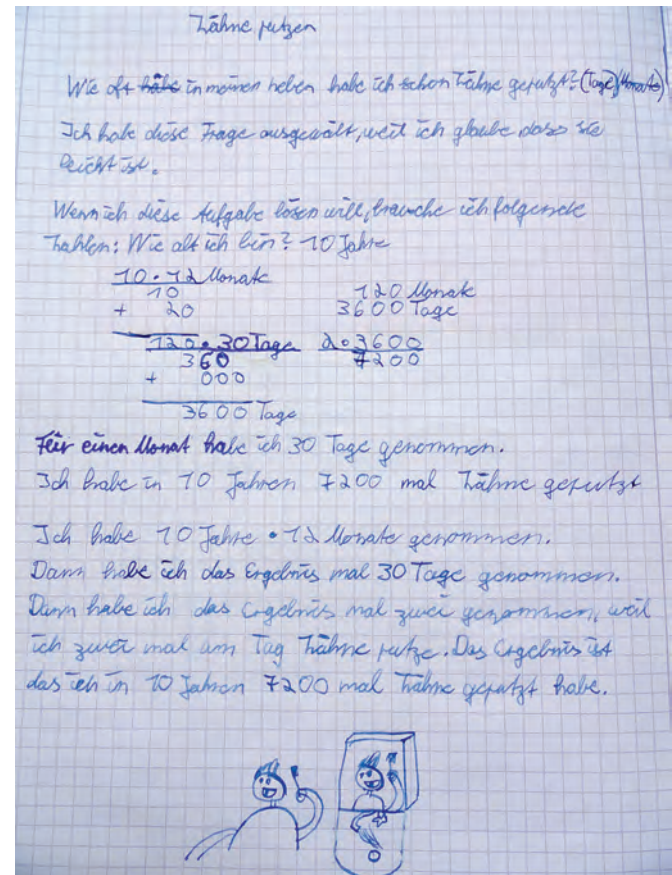 Zähne putzen
Wie oft habe in meinen Leben habe ich schon Zähne geputzt? (Tage) Monate)
Ich habe diese Frage ausgewält, weil ich glaube, dass sie
leicht ist.
Wenn ich diese Aufgabe lösen will, brauche ich folgende
Zahlen: Wie alt ich bin? 10 Jahre
10 • 12 Monate
10
+ 20
120 • 30 Tage
360
+ 000
3600 Tage
120 Monate
3600 Tage
2 • 3600
7200
Für einen Monat habe ich 30 Tage genommen.
Ich habe in 10 Jahren 7200 mal Zähne geputzt
Ich habe 10 Jahre • 12 Monate genommen.
Dann habe ich das Ergebnis mal 30 Tage genommen.
Dann habe ich das Ergebnis mal zwei genommen, weil
ich zwei mal am Tag Zähne putze. Das Ergebnis ist
das ich in 10 Jahren 7200 mal Zähne geputzt habe.